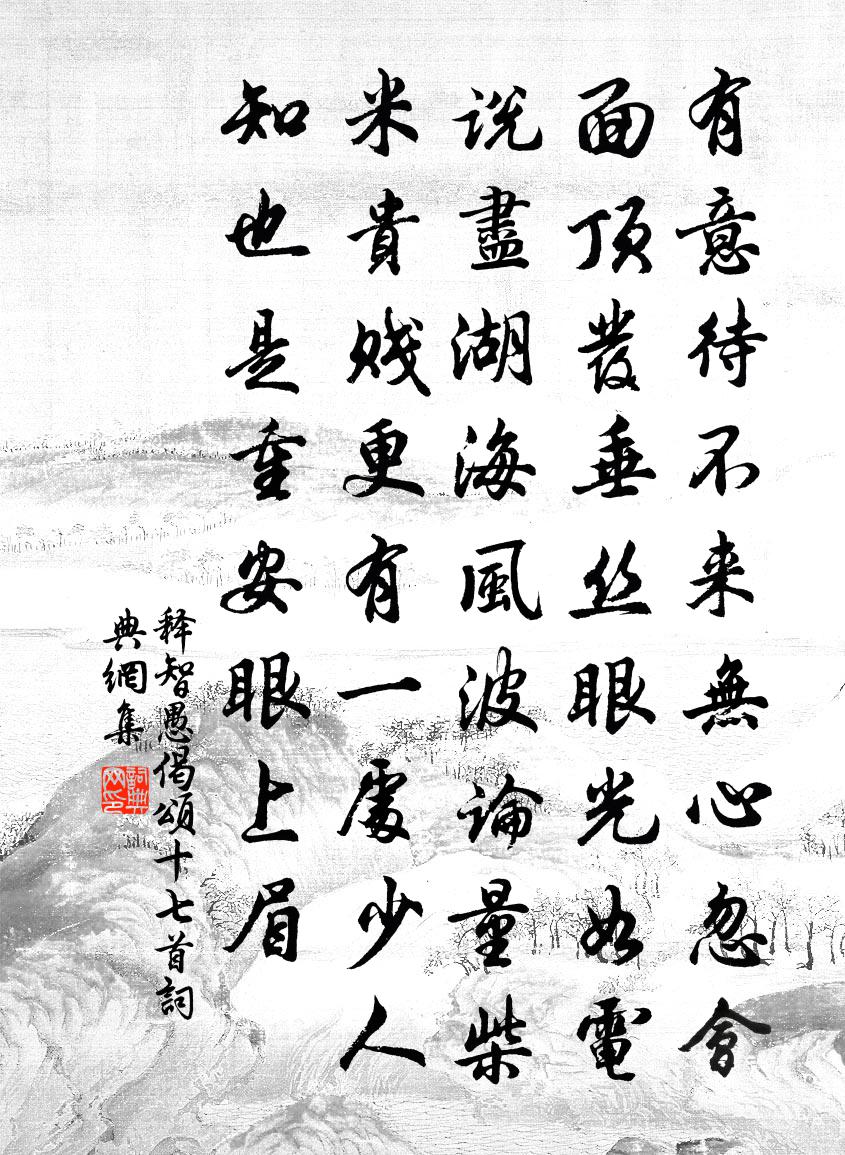 有意待不来無心忽會
面頂發垂丝眼光如電
説盡湖海風波論量柴
米貴賤更有一處少人
知也是重安眼上眉
释智愚偈頌十七首詞
典網集
詞典网印